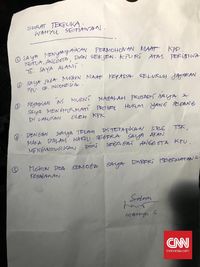 SURAT TERBUKA
WAHYU SETIAWAN.
① SAYA MENYAMPAIKAN PERMOHONAN MAAF KPD
KETUA, ANGGOTA, DAN SEKJEN KPU RI ATAS PERISTIWA
YG SAYA ALAMI
② SAYA JUGA MOHON MAAF KEPADA SELURUH JAJARAN
KPU SE INDONESIA
③ INI MURNI MASALAH PRIBADI SAYA &
SAYA MENGHORMATI PROSES HUKUM YANG SEDANG
DILAKUKAN OLEH KPK
④ DENGAN SAYA TELAH DITETAPKAN SBG TSK,
MAKA DALAM WAKTU SEGERA SAYA AKAN
MENGUNDURKAN DIRI SEBAGAI ANGGOTA KPU.
⑤ MOHON DOA SEMOGA SAYA DIBERI KESEHATAN &
WAHYU S
CNN
Indonesia